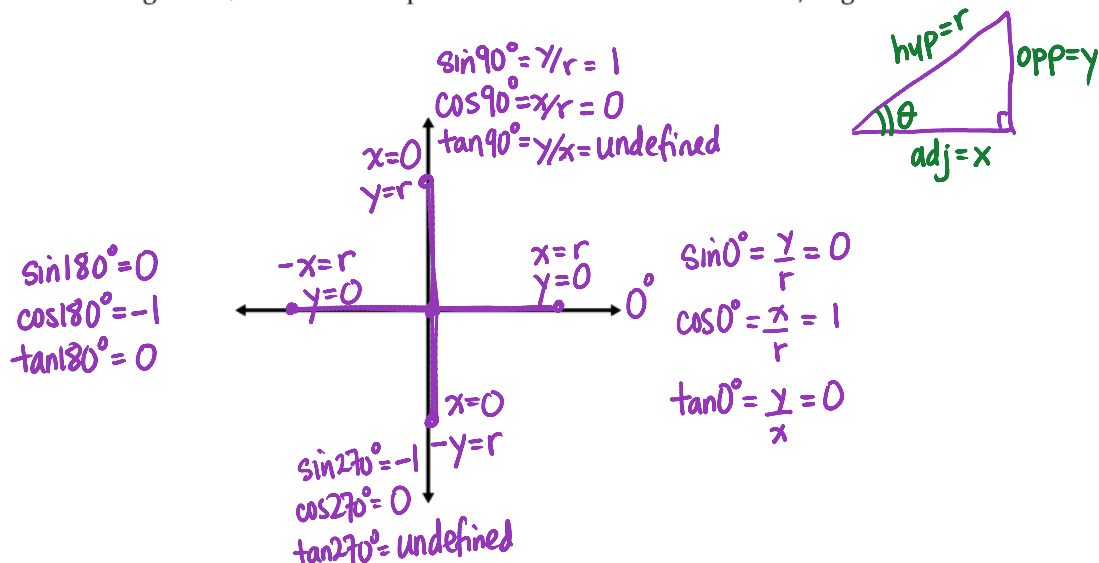 sin90°=y/r=1
cos90°=x/r=0
tan90°=y/x=undefined
hyp=r
opp=y
θ
adj=x
x=0
y=r
sin180°=0
cos180°=-1
tan180°=0
-x=r
y=0
x=r
y=0
0°
sin0°=y/r=0
cos0°=x/r=1
tan0°=y/x=0
x=0
-y=r
sin270°=-1
cos270°=0
tan270°=undefined